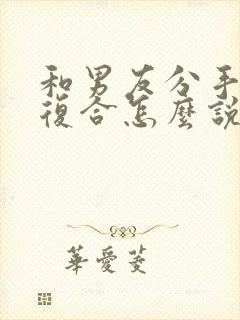 和男友分手
復合怎麼說
華愛菱